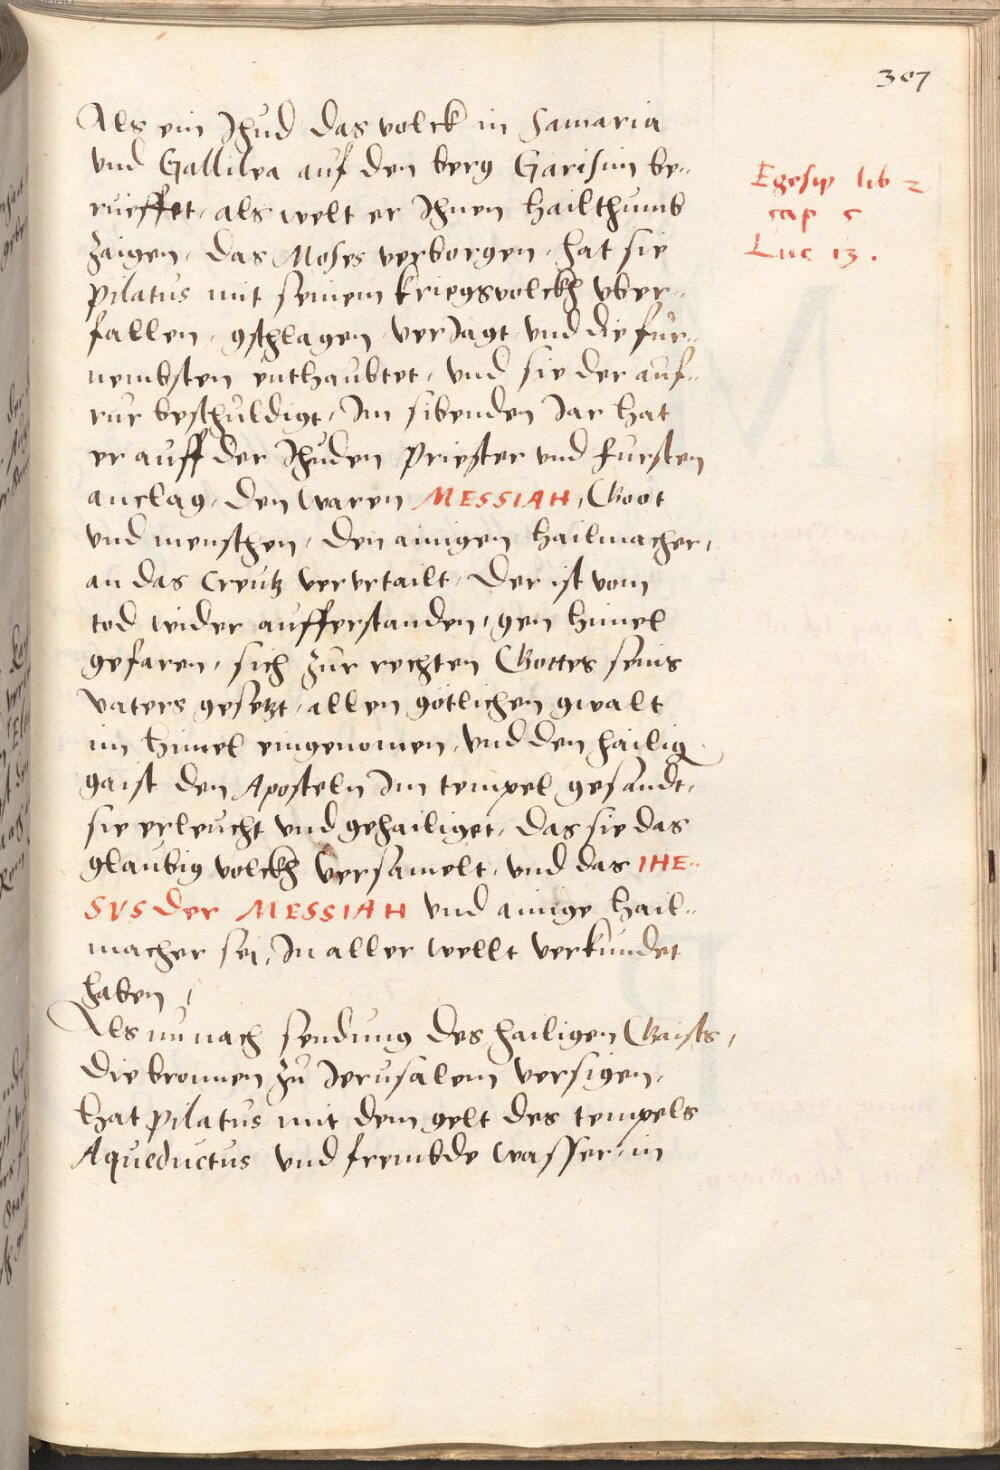 307
Als ein Jhud das volck in Samaria
vnd Gallilea auf den berg Garisim be-
rueffet, als welt er Jhnen hailthumb
zaigen, das Moses verborgen, hat sie
pilatus mit seinem kriegsvolckh vber-
fallen, gschlagen, verJagt vnd die fur-
nembsten enthaubtet, vnd sie der auf-
rur beschuldigt, Jm sibenden Jar hat
er auff der Jhuden Priester vnd fursten
anclag, den waren MESSIAH, Goot
vnd menschen, den ainigen hailmacher,
an das Creutz verertailt, Der ist vom
tod wider aufferstanden, gen himel
gefaren, sich zur rechten Gottes seins
vaters gesetzt, allen götlichen gwalt
im himel eingenomen, vnd den hailig
gaist den Aposteln Jm tempel gesandt,
sie erleucht vnd gehailiget, das sie das
glaubig volckh versamelt, vnd das IHE-
SVS der MESSIAH vnd ainige hail-
macher sei, Jn aller wellt verkundet
haben,
Als nu nach sendung des hailigen Gaists,
die bronnen zu Jerusalem versigen,
hat pilatus mit dem gelt des tempels
Aqueductus vnd frembde wasser, in
Egesip lib 2
cap 5
Luc 13.